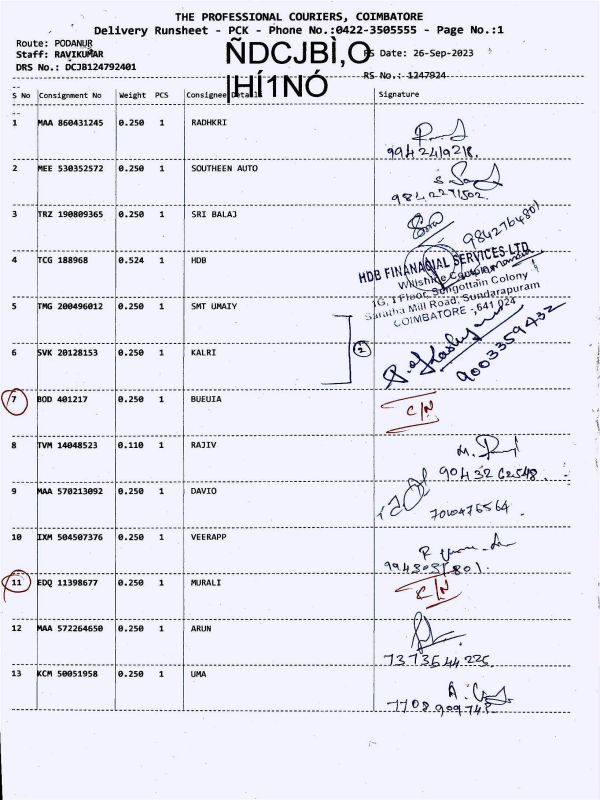 THE PROFESSIONAL COURIERS, COIMBATORE
Delivery Runsheet - PCK - Phone No.:0422-3505555 - Page No.:1
Route: PODANUR
Staff: RAVIKUMAR
DRS No.: DCJB124792401
ÑDCJBÌ,O
|HÍ1NÓ
RS Date: 26-Sep-2023
RS No.: 1247924
S No Consignment No Weight PCS Consignee Details Signature
1 MAA 860431245 0.250 1 RADHKRI
2 MEE 530352572 0.250 1 SOUTHEEN AUTO
9842271502
3 TRZ 190809365 0.250 1 SRI BALAJ
9842764801
4 TCG 188968 0.524 1 HDB
HDB FINANACIAL SERVICES LTD
1G, 1 Floor, Sengottain Colony
Saratha Mill Road, Sundarapuram
COIMBATORE - 641 024
5 TMG 200496012 0.250 1 SMT UMAIY
2
6 SVK 20128153 0.250 1 KALRI
9003359432
7 BOD 401217 0.250 1 BUEUIA
C/N
8 TVM 14048523 0.110 1 RAJIV
90432 62548
9 MAA 570213092 0.250 1 DAVIO
7010476564
10 IXM 504507376 0.250 1 VEERAPP
11 EDQ 11398677 0.250 1 MURALI
C/N
12 MAA 572264650 0.250 1 ARUN
7373544225
13 KCM 50051958 0.250 1 UMA